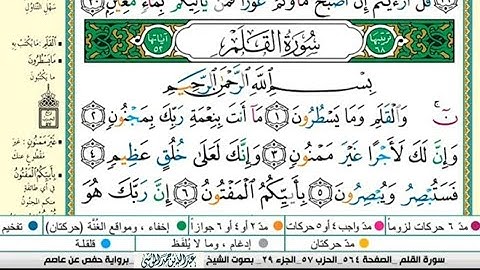 قُلْ أَرَءَيْتُمْ إِنْ أَصْبَحَ مَآؤُكُمْ غَوْرًا فَمَن يَأْتِيكُم بِمَآءٍ مَّعِينٍ ٣٠
ترتيبها ٦٨ سُورَةُ القَلَمِ آياتها ٥٢
بِسْمِ ٱللَّهِ ٱلرَّحْمَٰنِ ٱلرَّحِيمِ
نٓ ۚ وَٱلْقَلَمِ وَمَا يَسْطُرُونَ ١ مَآ أَنتَ بِنِعْمَةِ رَبِّكَ بِمَجْنُونٍ ٢
وَإِنَّ لَكَ لَأَجْرًا غَيْرَ مَمْنُونٍ ٣ وَإِنَّكَ لَعَلَىٰ خُلُقٍ عَظِيمٍ ٤
فَسَتُبْصِرُ وَيُبْصِرُونَ ٥ بِأَييِّكُمُ ٱلْمَفْتُونُ ٦ إِنَّ رَبَّكَ هُوَ
سَهْلِ التَّنَاوُلِ
القَلَمِ: مَا يُكْتَبُ بِهِ
مَا يَسْطُرُونَ
مَا يَكْتُبُونَ
غَيْرَ مَمْنُونٍ: غَيْرَ
مَقْطُوعٍ عَنْكَ
بِأَييِّكُمُ المَفْتُونُ
فِي أَيِّ طَائِفَةٍ
مدّ ٦ حركات لزوماً مدّ ٢ أو ٤ أو ٦ جوازاً إخفاء، ومواقع الغُنَّة (حركتان) تفخيم
مدّ واجب ٤ أو ٥ حركات مدّ حركتان إدغام ، وما لا يُلفَظ قلقلة
سورة القلم _ الصفحة ٥٦٤ _ الحزب ٥٧ _ الجزء ٢٩ _ بصوت الشيخ _ برواية حفص عن عاصم